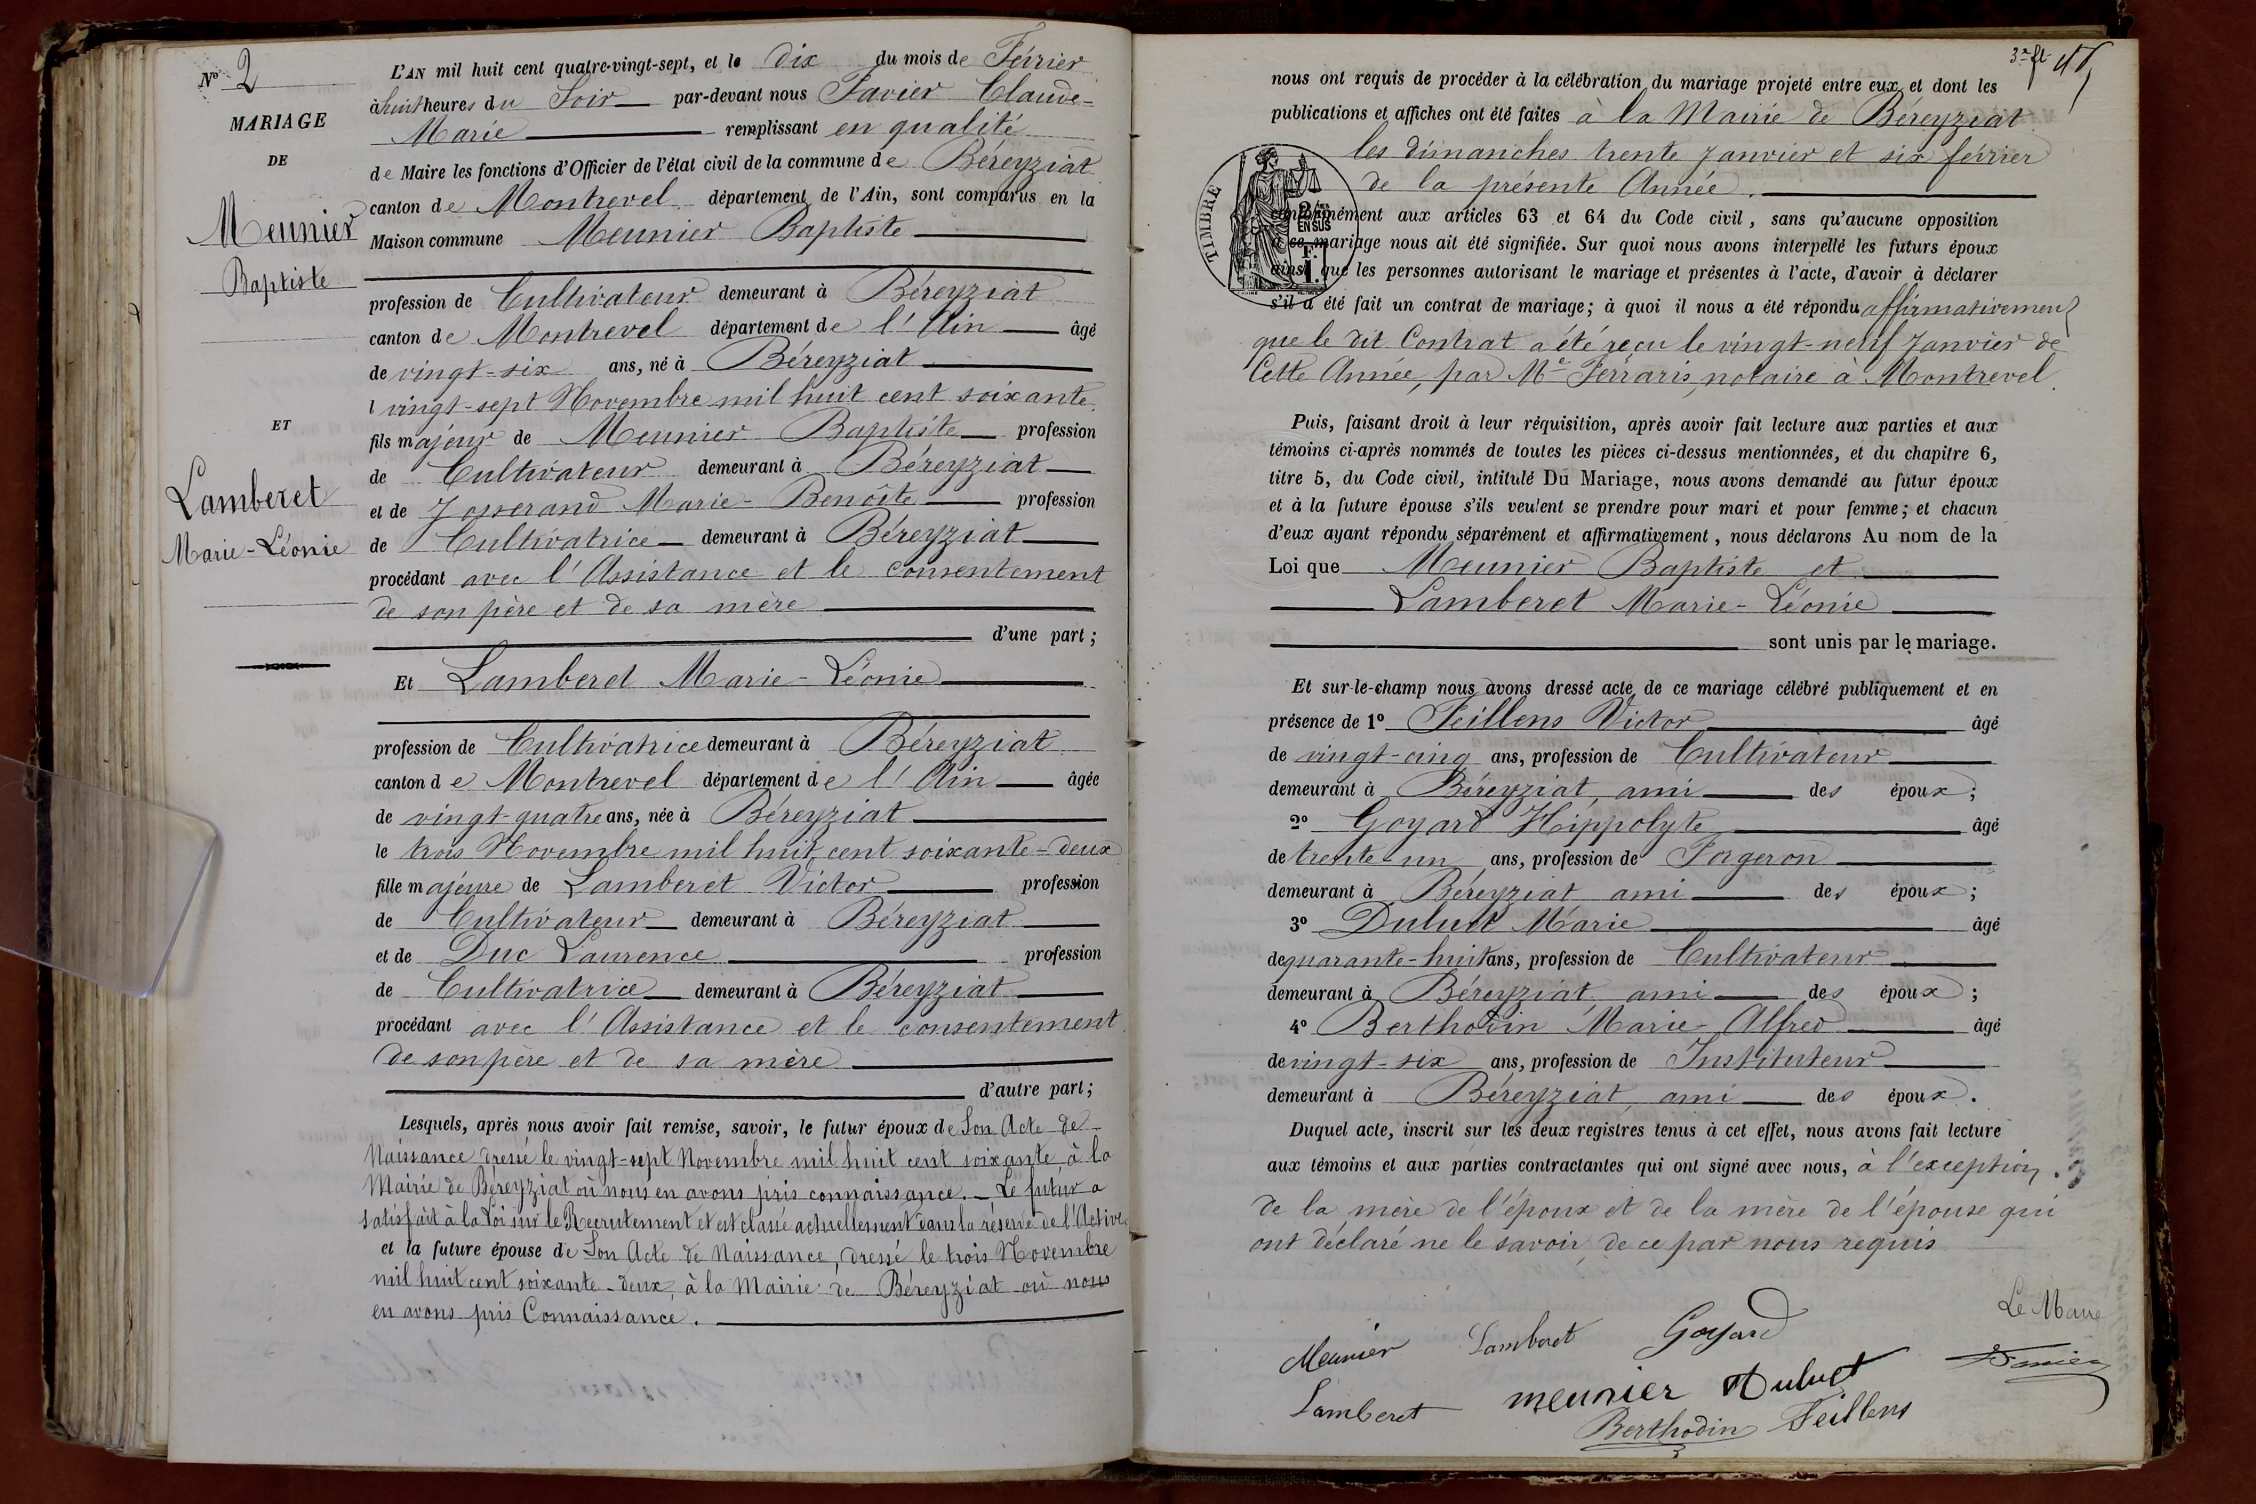 Nº 2
MARIAGE
DE
Meunier
Baptiste
ET
Lamberet
Marie-Léonie
L'AN mil huit cent quatre-vingt-sept, et le dix du mois de Février
à huit heures du Soir par-devant nous Favier Claude-
Marie remplissant en qualité
de Maire les fonctions d'Officier de l'état civil de la commune de Béreyziat
canton de Montrevel département de l'Ain, sont comparus en la
Maison commune Meunier Baptiste
profession de Cultivateur demeurant à Béreyziat
canton de Montrevel département de l'Ain âgé
de vingt-six ans, né à Béreyziat
l vingt-sept Novembre mil huit cent soixante
fils majeur de Meunier Baptiste profession
de Cultivateur demeurant à Béreyziat
et de Josserand Marie-Benoîte profession
de Cultivatrice demeurant à Béreyziat
procédant avec l'Assistance et le consentement
de son père et de sa mère
d'une part;
Et Lamberet Marie-Léonie
profession de Cultivatrice demeurant à Béreyziat
canton de Montrevel département de l'Ain âgée
de vingt-quatre ans, née à Béreyziat
le trois Novembre mil huit cent soixante-deux
fille majeure de Lamberet Victor profession
de Cultivateur demeurant à Béreyziat
et de Duc Laurence profession
de Cultivatrice demeurant à Béreyziat
procédant avec l'Assistance et le consentement
de son père et de sa mère
d'autre part;
Lesquels, après nous avoir fait remise, savoir, le futur époux de Son Acte de
Naissance dressé le vingt-sept Novembre mil huit cent soixante à la
Mairie de Béreyziat où nous en avons pris connaissance. - Le futur a
satisfait à la Loi sur le Recrutement et est classé actuellement dans la réserve de l'Active
et la future épouse de Son Acte de Naissance, dressé le trois Novembre
mil huit cent soixante-deux, à la Mairie de Béreyziat où nous
en avons pris Connaissance.
3e ft
nous ont requis de procéder à la célébration du mariage projeté entre eux et dont les
publications et affiches ont été faites à la Mairie de Béreyziat
les dimanches trente Janvier et six février
de la présente Année.
TIMBRE
2/10es
EN SUS
F.
1.
conformément aux articles 63 et 64 du Code civil, sans qu'aucune opposition
à ce mariage nous ait été signifiée. Sur quoi nous avons interpellé les futurs époux
ainsi que les personnes autorisant le mariage et présentes à l'acte, d'avoir à déclarer
s'il a été fait un contrat de mariage; à quoi il nous a été répondu affirmativement
que le dit Contrat a été reçu le vingt-neuf Janvier de
Cette Année, par Me Ferraris, notaire à Montrevel.
Puis, faisant droit à leur réquisition, après avoir fait lecture aux parties et aux
témoins ci-après nommés de toutes les pièces ci-dessus mentionnées, et du chapitre 6,
titre 5, du Code civil, intitulé Du Mariage, nous avons demandé au futur époux
et à la future épouse s'ils veulent se prendre pour mari et pour femme; et chacun
d'eux ayant répondu séparément et affirmativement, nous déclarons Au nom de la
Loi que Meunier Baptiste et
Lamberet Marie-Léonie
sont unis par le mariage.
Et sur-le-champ nous avons dressé acte de ce mariage célébré publiquement et en
présence de 1º Feillens Victor âgé
de vingt-cinq ans, profession de Cultivateur
demeurant à Béreyziat, ami des époux;
2º Goyard Hippolyte âgé
de trente-un ans, profession de Forgeron
demeurant à Béreyziat ami des époux;
3º Duluct Marie âgé
de quarante-huit ans, profession de Cultivateur
demeurant à Béreyziat, ami des époux;
4º Berthodin Marie-Alfred âgé
de vingt-six ans, profession de Instituteur
demeurant à Béreyziat, ami des époux.
Duquel acte, inscrit sur les deux registres tenus à cet effet, nous avons fait lecture
aux témoins et aux parties contractantes qui ont signé avec nous, à l'exception
de la mère de l'époux et de la mère de l'épouse qui
ont déclaré ne le savoir, de ce par nous requis
Le Maire
Meunier Lamberet Goyard
Favier
Lamberet meunier Duluct
Berthodin Feillens